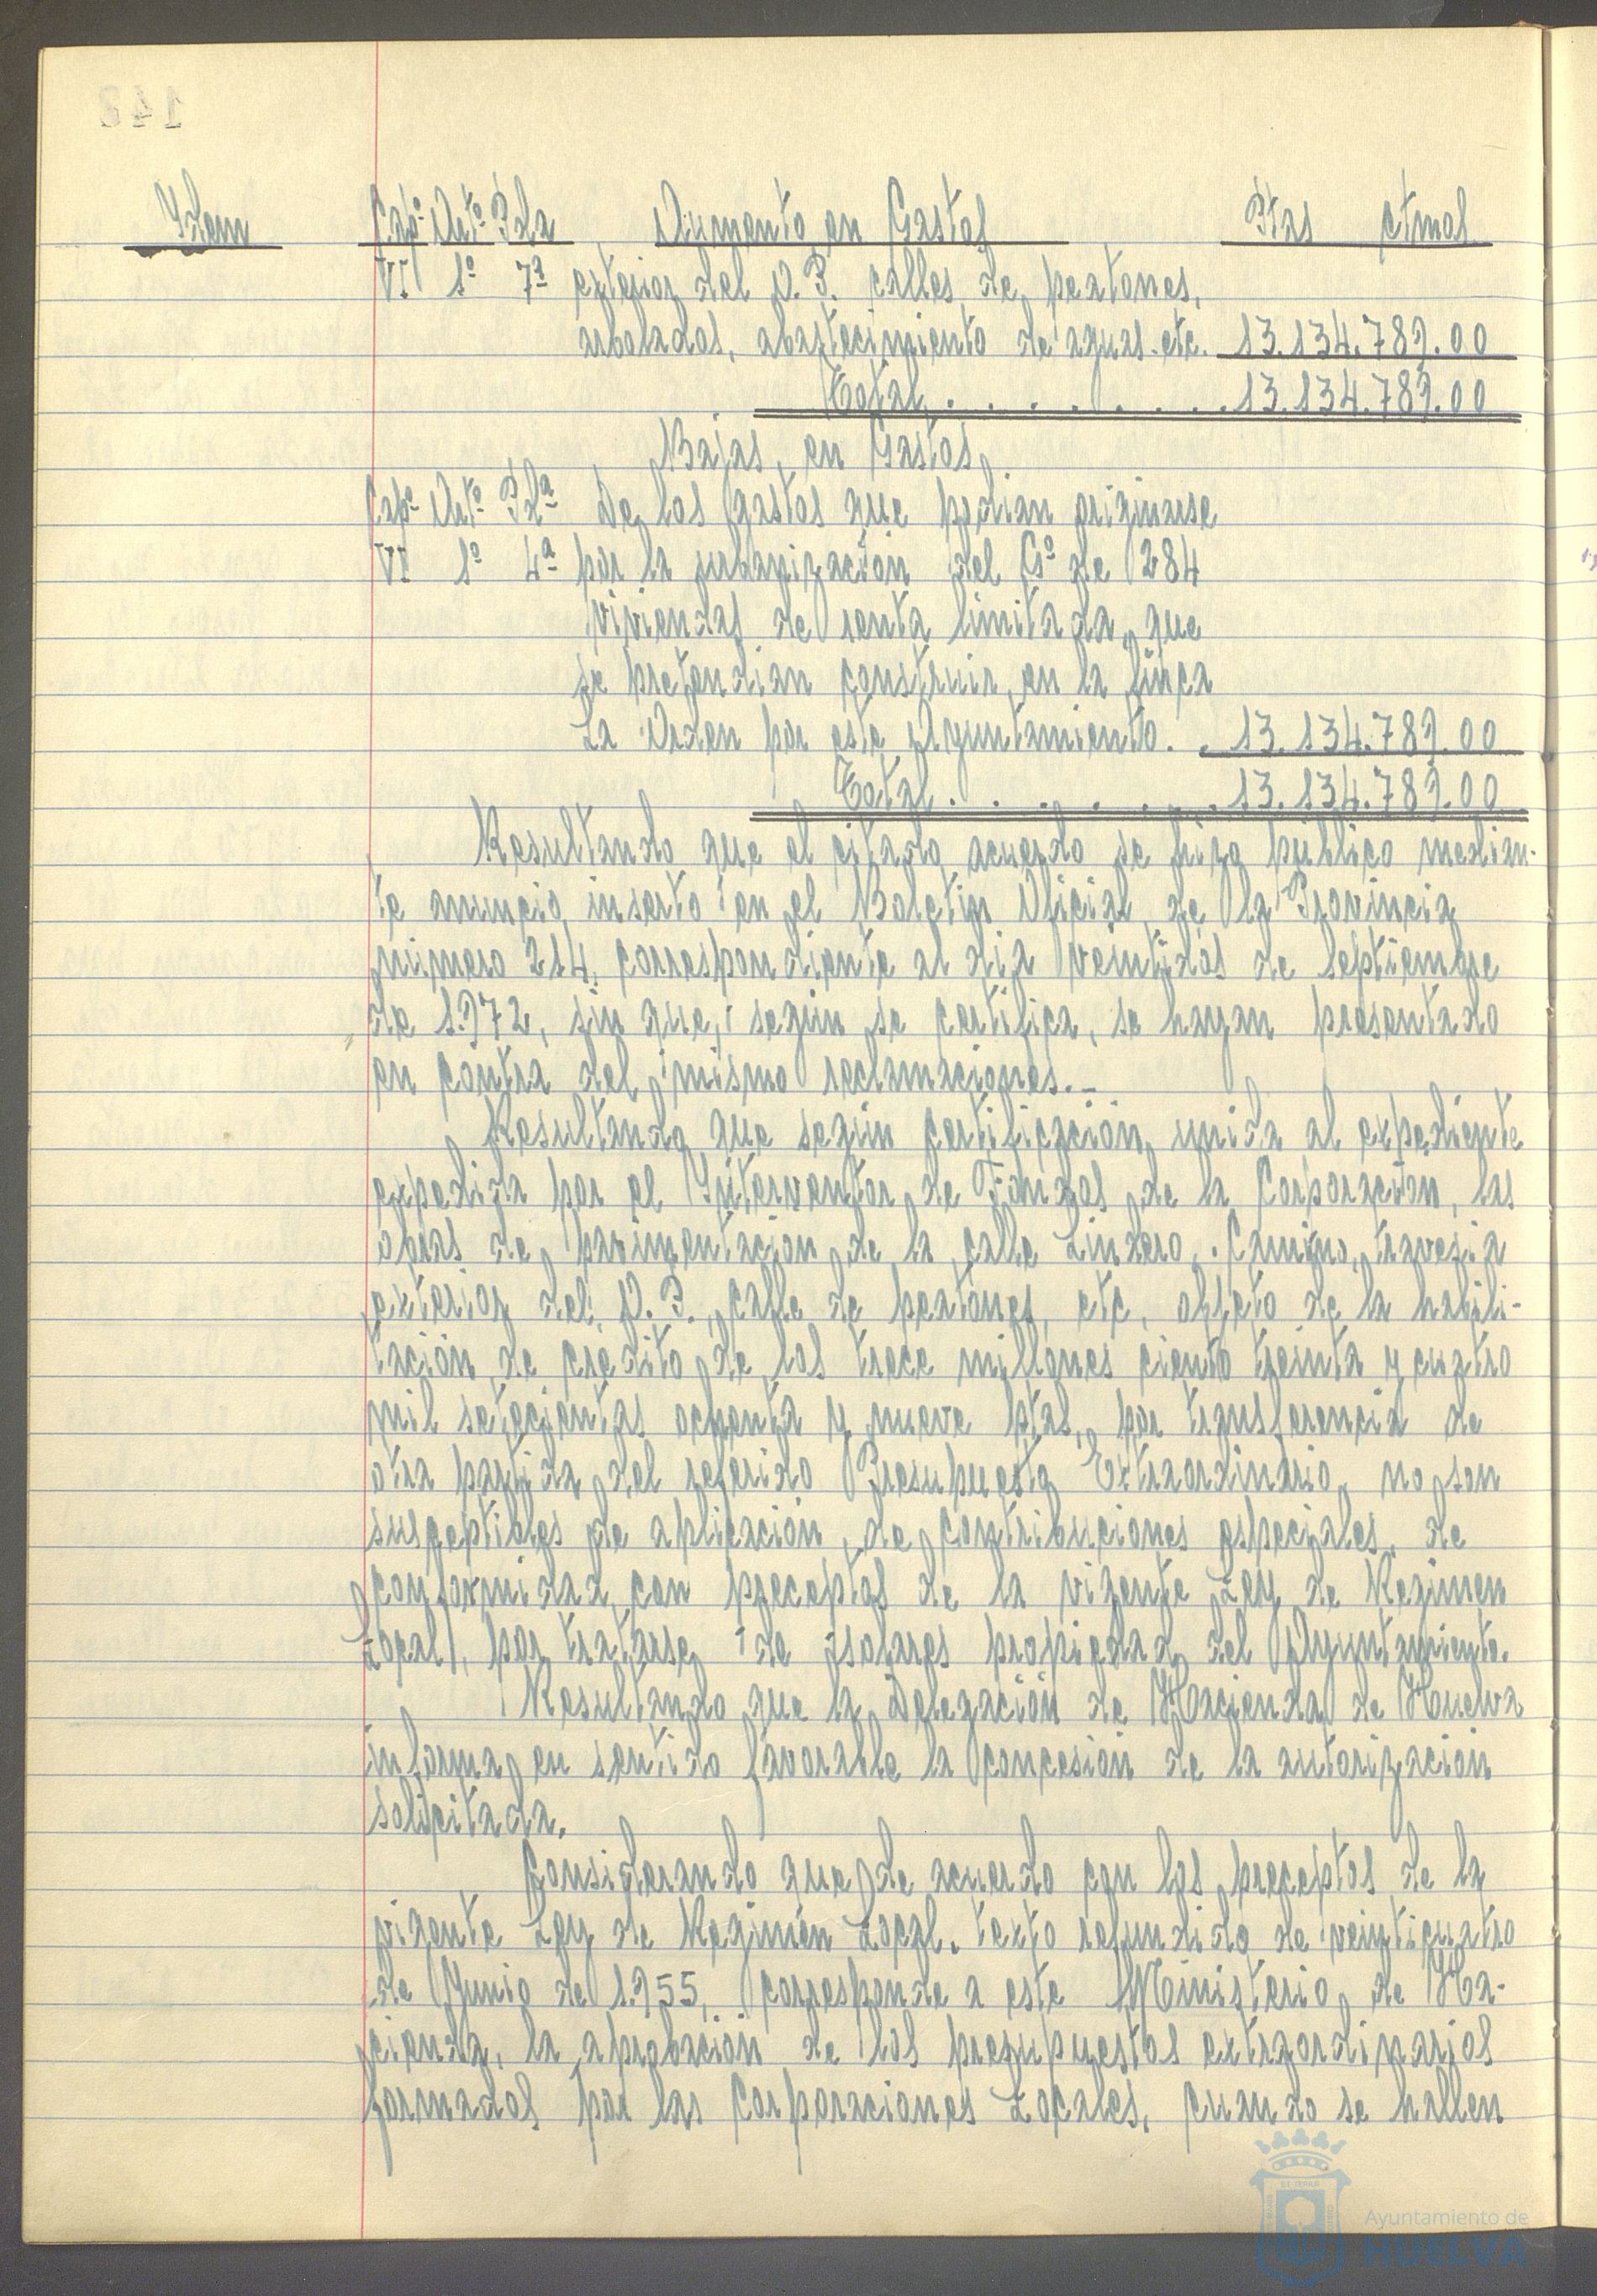 Idem
Cap.º Art.º Pda Aumento en Gastos Ptas ctmos
VI 1º 7ª exterior del V.P. calles de peatones,
arbolados, abastecimiento de aguas. etc. 13.134.789.00
Total . . . . . . . . 13.134.789.00
Bajas en Gastos
Cap.º Art.º Pdª De los gastos que podian originarse
VI 1º 4ª por la urbanización del Gº de 284
viviendas de renta limitada que
se pretendian construir en la finca
La Orden por este Ayuntamiento. . 13.134.789.00
Total . . . . . . . 13.134.789.00
Resultando que el citado acuerdo se hizo público median-
te anuncio inserto en el Boletin Oficial de la Provincia
número 214, correspondiente al dia veintidos de septiembre
de 1.972, sin que, según se certifica, se hayan presentado
en contra del mismo reclamaciones.-
Resultando que según certificación unida al expediente
expedida por el Interventor de Fondos de la Corporación, las
obras de pavimentación de la calle Lindero, Camino, travesia
exterior del V.P., calle de peatones, etc, objeto de la habili-
tación de credito de los trece millones ciento treinta y cuatro
mil setecientas ochenta y nueve ptas, por transferencia de
otra partida del referido Presupuesto Extraordinario, no son
susceptibles de aplicación de contribuciones especiales, de
conformidad con preceptos de la vigente Ley de Regimen
Local, por tratarse de solares propiedad del Ayuntamiento.
Resultando que la Delegación de Hacienda de Huelva
informa en sentido favorable la concesión de la autorización
solicitada.
Considerando que de acuerdo con los preceptos de la
vigente Ley de Regimen Local. texto refundido de veinticuatro
de Junio de 1.955, corresponde a este Ministerio de Ha-
cienda, la aprobación de los presupuestos extraordinarios
formados por las Corporaciones Locales, cuando se hallen
Ayuntamiento de
HUELVA